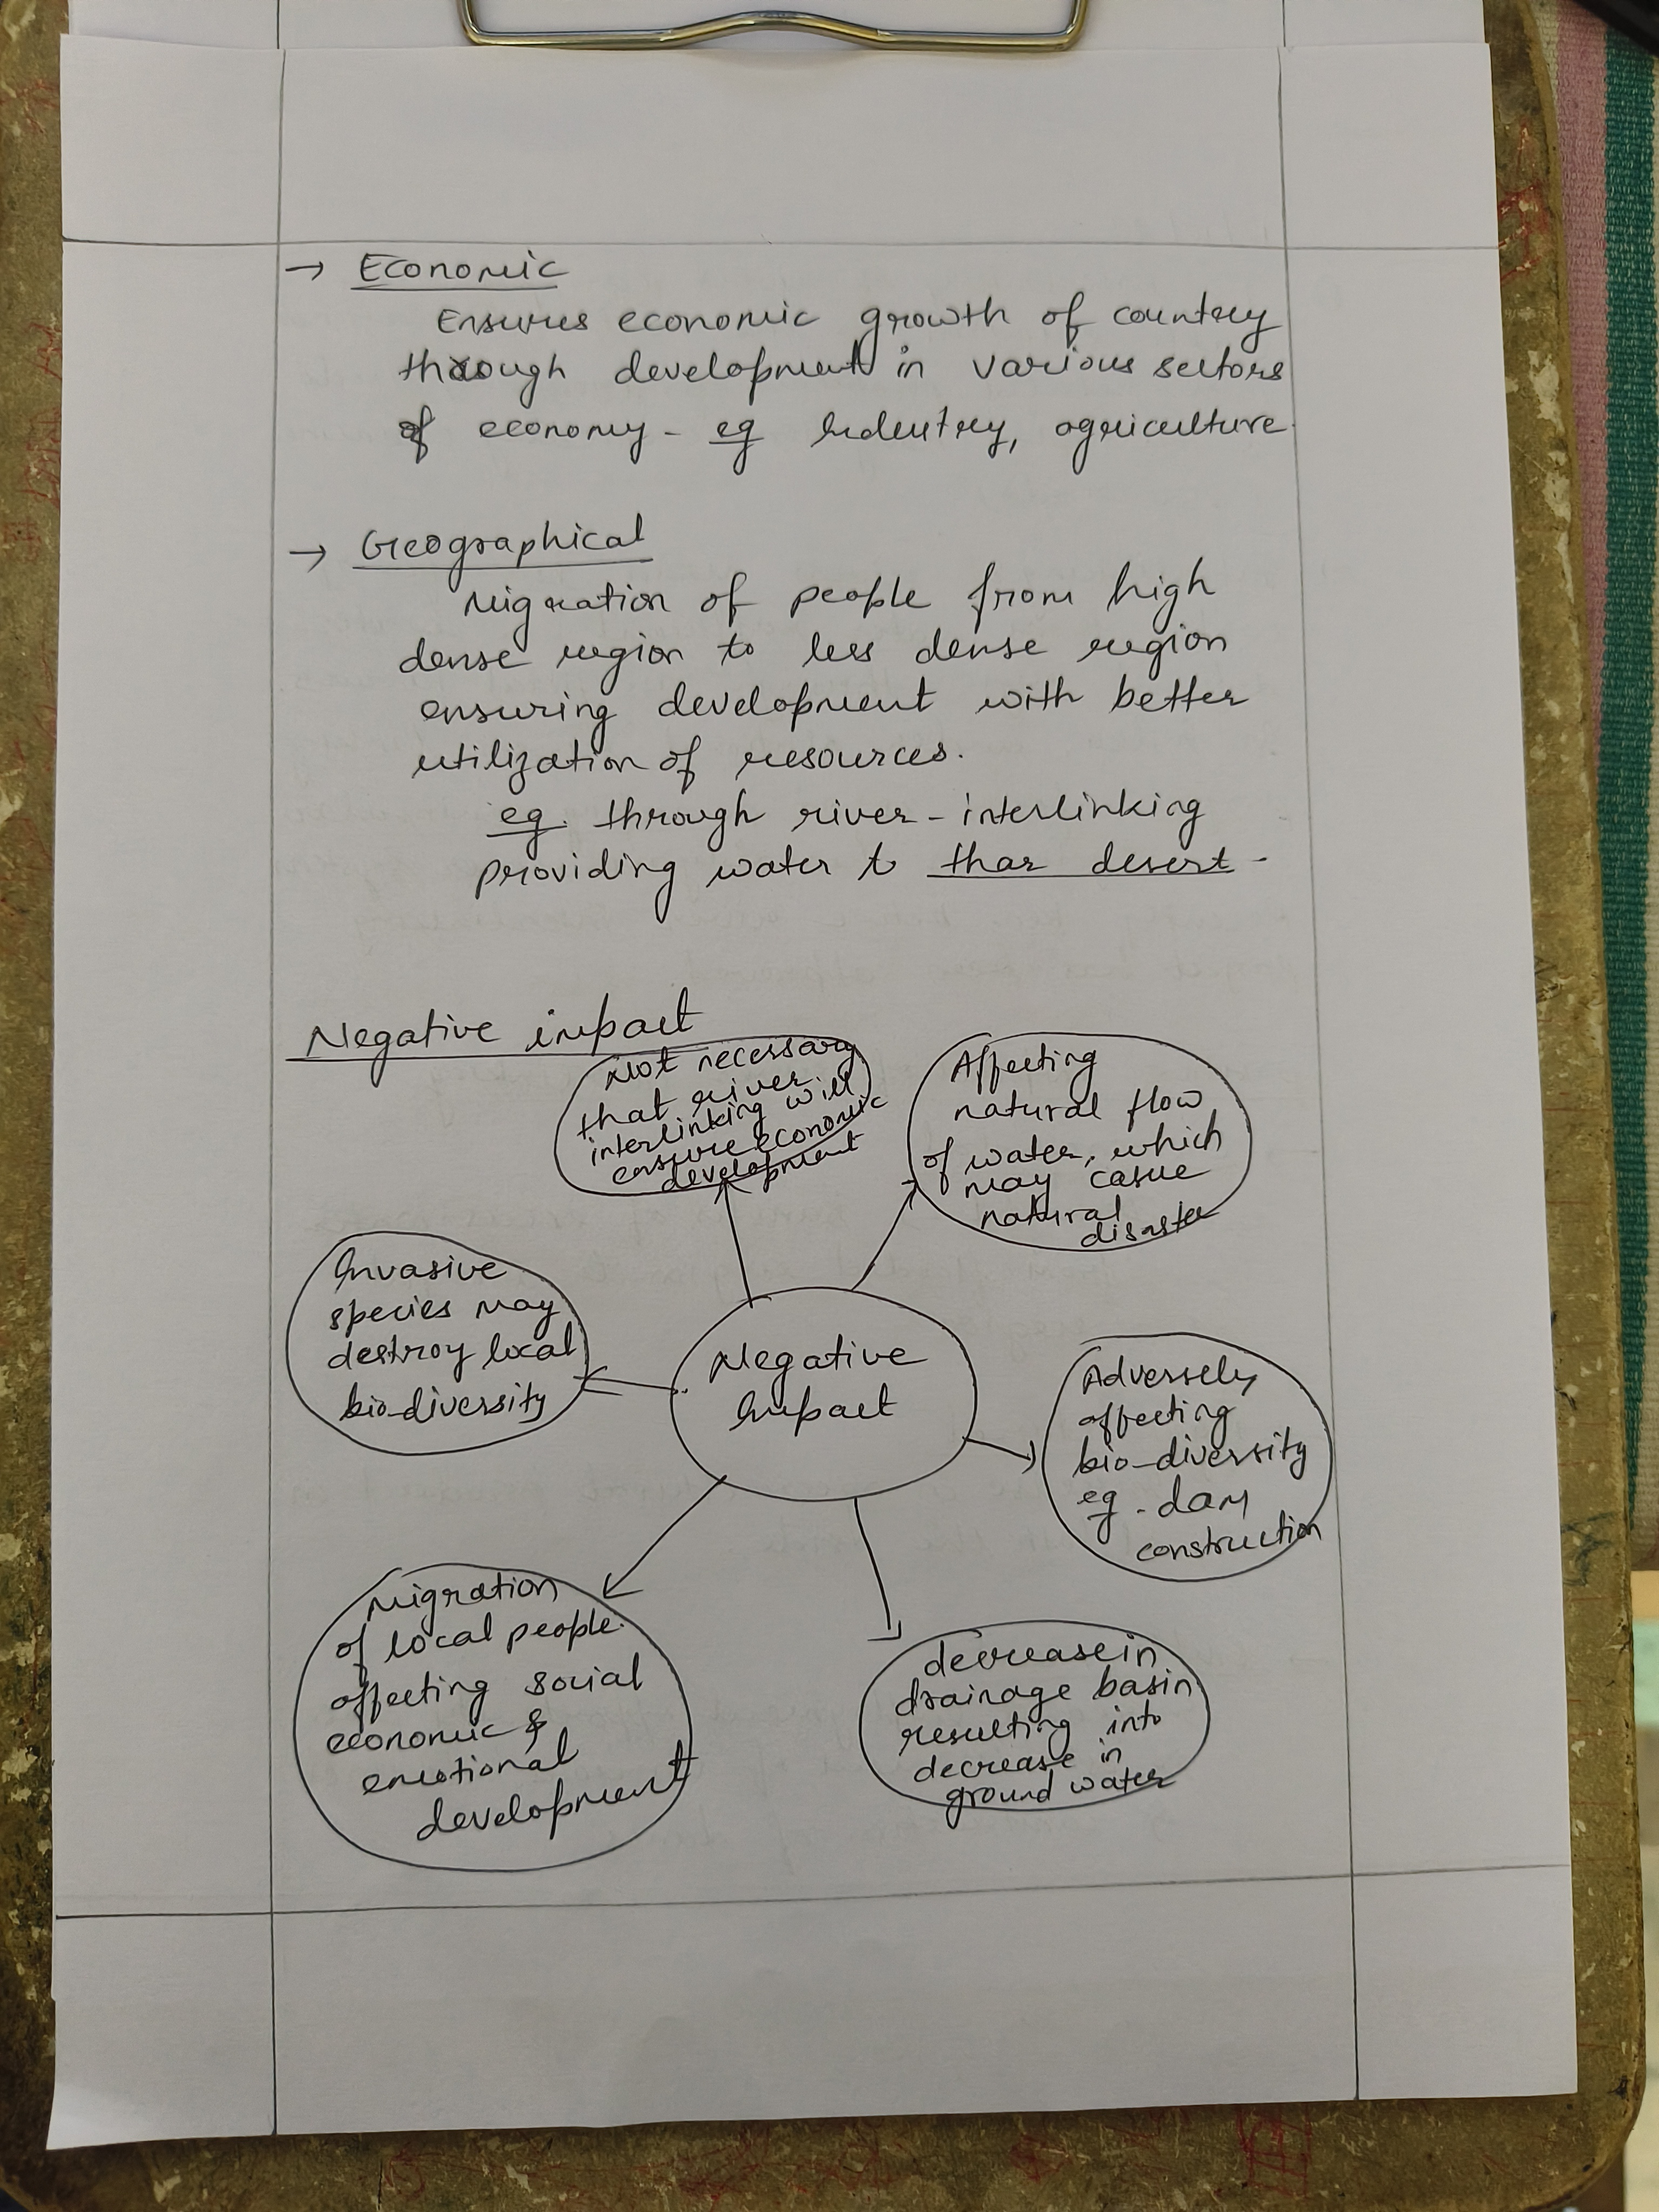 → Economic
Ensures economic growth of country
through development in various sectors
of economy - eg Industry, agriculture.
→ Geographical
Migration of people from high
dense region to less dense region
ensuring development with better
utilization of resources.
eg. through river-interlinking
providing water to thar desert -
Negative impact
Not necessary
that river
interlinking will
ensure economic
development
Affecting
natural flow
of water, which
may casue
natural
disaster
Invasive
species may
destroy local
bio-diversity
Negative
Impact
Adversely
affecting
bio-diversity
eg - dam
construction
Migration
of local people.
affecting social
economic &
emotional
development
decrease in
drainage basin
resulting into
decrease in
ground water